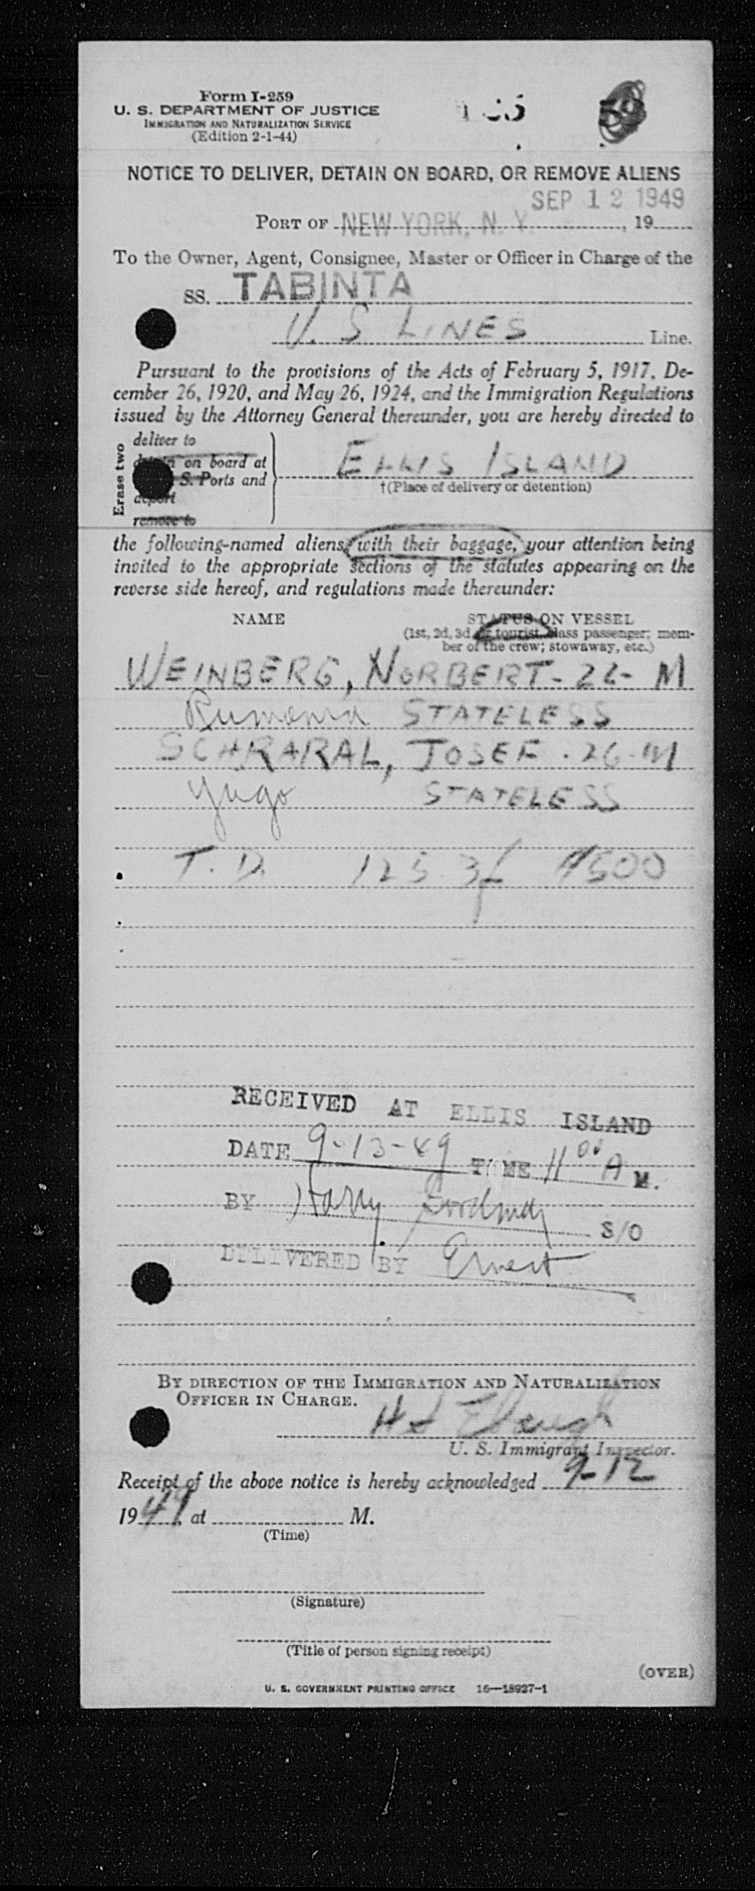 Form I-259
U. S. DEPARTMENT OF JUSTICE
IMMIGRATION AND NATURALIZATION SERVICE
(Edition 2-1-44)
59
NOTICE TO DELIVER, DETAIN ON BOARD, OR REMOVE ALIENS
SEP 12 1949
PORT OF NEW YORK, N. Y. , 19
To the Owner, Agent, Consignee, Master or Officer in Charge of the
SS. TABINTA
U. S LINES Line.
Pursuant to the provisions of the Acts of February 5, 1917, De-
cember 26, 1920, and May 26, 1924, and the Immigration Regulations
issued by the Attorney General thereunder, you are hereby directed to
Erase two
deliver to
on board at
S. Ports and
remove to
ELLIS ISLAND
†(Place of delivery or detention)
the following-named aliens, with their baggage, your attention being
invited to the appropriate sections of the statutes appearing on the
reverse side hereof, and regulations made thereunder:
NAME STATUS ON VESSEL
(1st, 2d, 3d, or tourist class passenger; mem-
ber of the crew; stowaway, etc.)
WEINBERG, NORBERT - 22 - M
Rumania STATELESS
SCHRARAL, JOSEF - 26 - M
Yugo STATELESS
T. D. 125 500
RECEIVED AT ELLIS ISLAND
DATE 9-13-49 TIME 11 00 A M.
BY Harry S/O
DELIVERED BY Ernest
BY DIRECTION OF THE IMMIGRATION AND NATURALIZATION
OFFICER IN CHARGE.
U. S. Immigrant Inspector.
Receipt of the above notice is hereby acknowledged 9-12
1949 at M.
(Time)
(Signature)
(Title of person signing receipt)
(OVER)
U. S. GOVERNMENT PRINTING OFFICE 16—18927-1